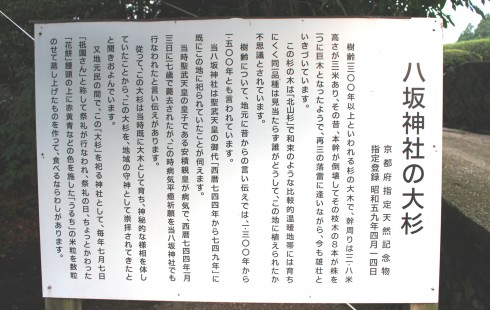 八坂神社の大杉
京都府指定天然記念物
指定登録 昭和五九年四月一四日
樹齢三〇〇年以上といわれる杉の大木で、幹周りは三・八米
高さが三三米あり、その昔、本幹が倒壊してその枝木の8本が株を
一つに巨木となったようで、再三の落雷に逢いながら、今も雄壮と
いきづいています。
この杉の木は「北山杉」で和束のような比較的温暖地帯には育ち
にくく同品種は見当たらず誰がどうして、この地に植えられたか
不思議とされています。
樹齢について、地元に昔からの言い伝えでは、一三〇〇から
一五〇〇年とも言われています。
当八坂神社は聖武天皇の御代「西暦七四四年から七四九年」に
既にこの地に祀られていたことが伺えます。
当時聖武天皇の皇子である安積親皇が病気で、西暦七四四年一月
三日に七歳で薨去されたが、この時病気平癒祈願を当八坂神社でも
行なわれたと言い伝えがあります。
従って、この大杉は当時既に大木として育ち、神秘的な様相を体し
ていたことから、この大杉を、地域の守神として崇拝されてきたと
と聞きおよんでいます。
又地元民の間で、この「大杉」を祀る神社として、毎年七月七日
「祇園さん」と称して祭礼が行なわれ、祭礼の日、ちょっとかわった
「花餅」饅頭の上に赤黄青などの色を施した「うるち」の米粒を数粒
のせて蒸し上げたものを作って、食べるならわしがあります。